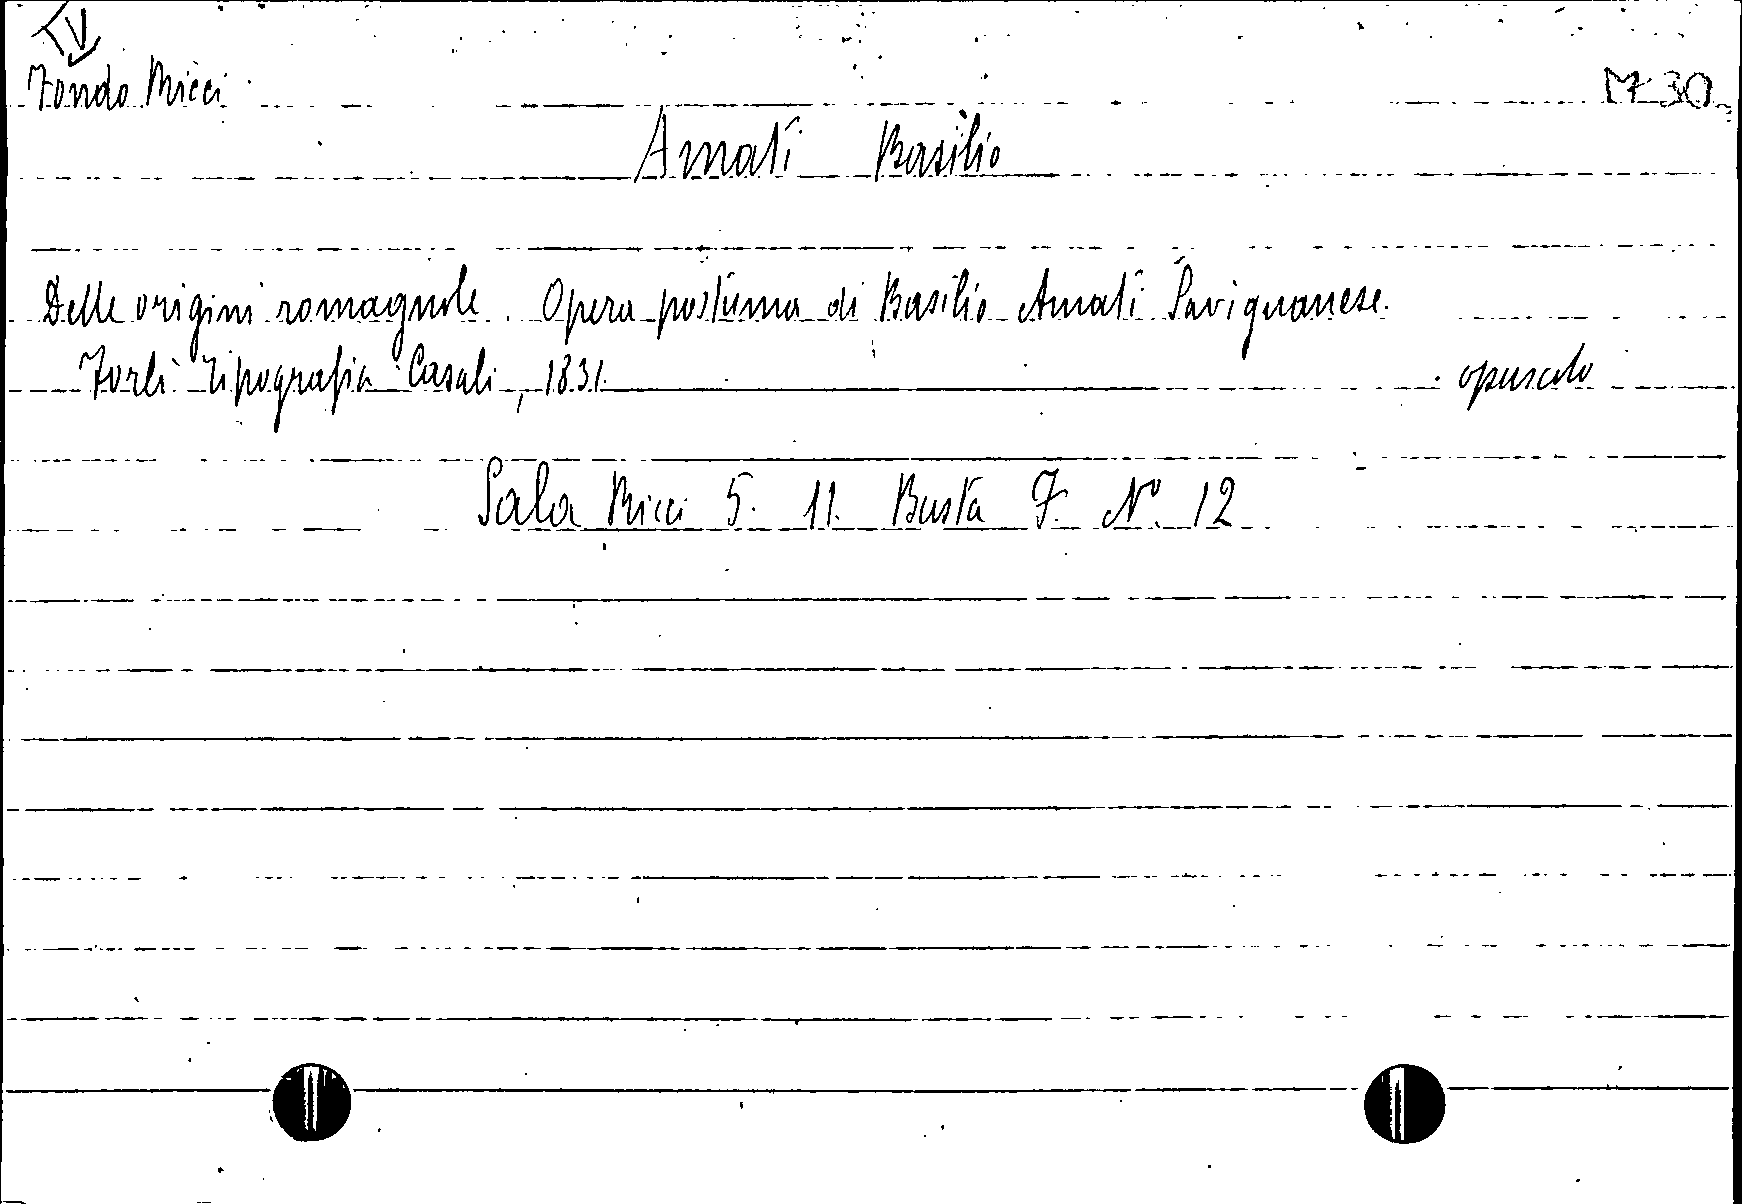 TV
Fondo Ricci
M 30
Amati Basilio
Delle origini romagnole. Opera postuma di Basilio Amati Savignanese.
Forlì Tipografia Casali, 1831. opuscolo
Sala Ricci 5. 11. Busta 7. N° 12